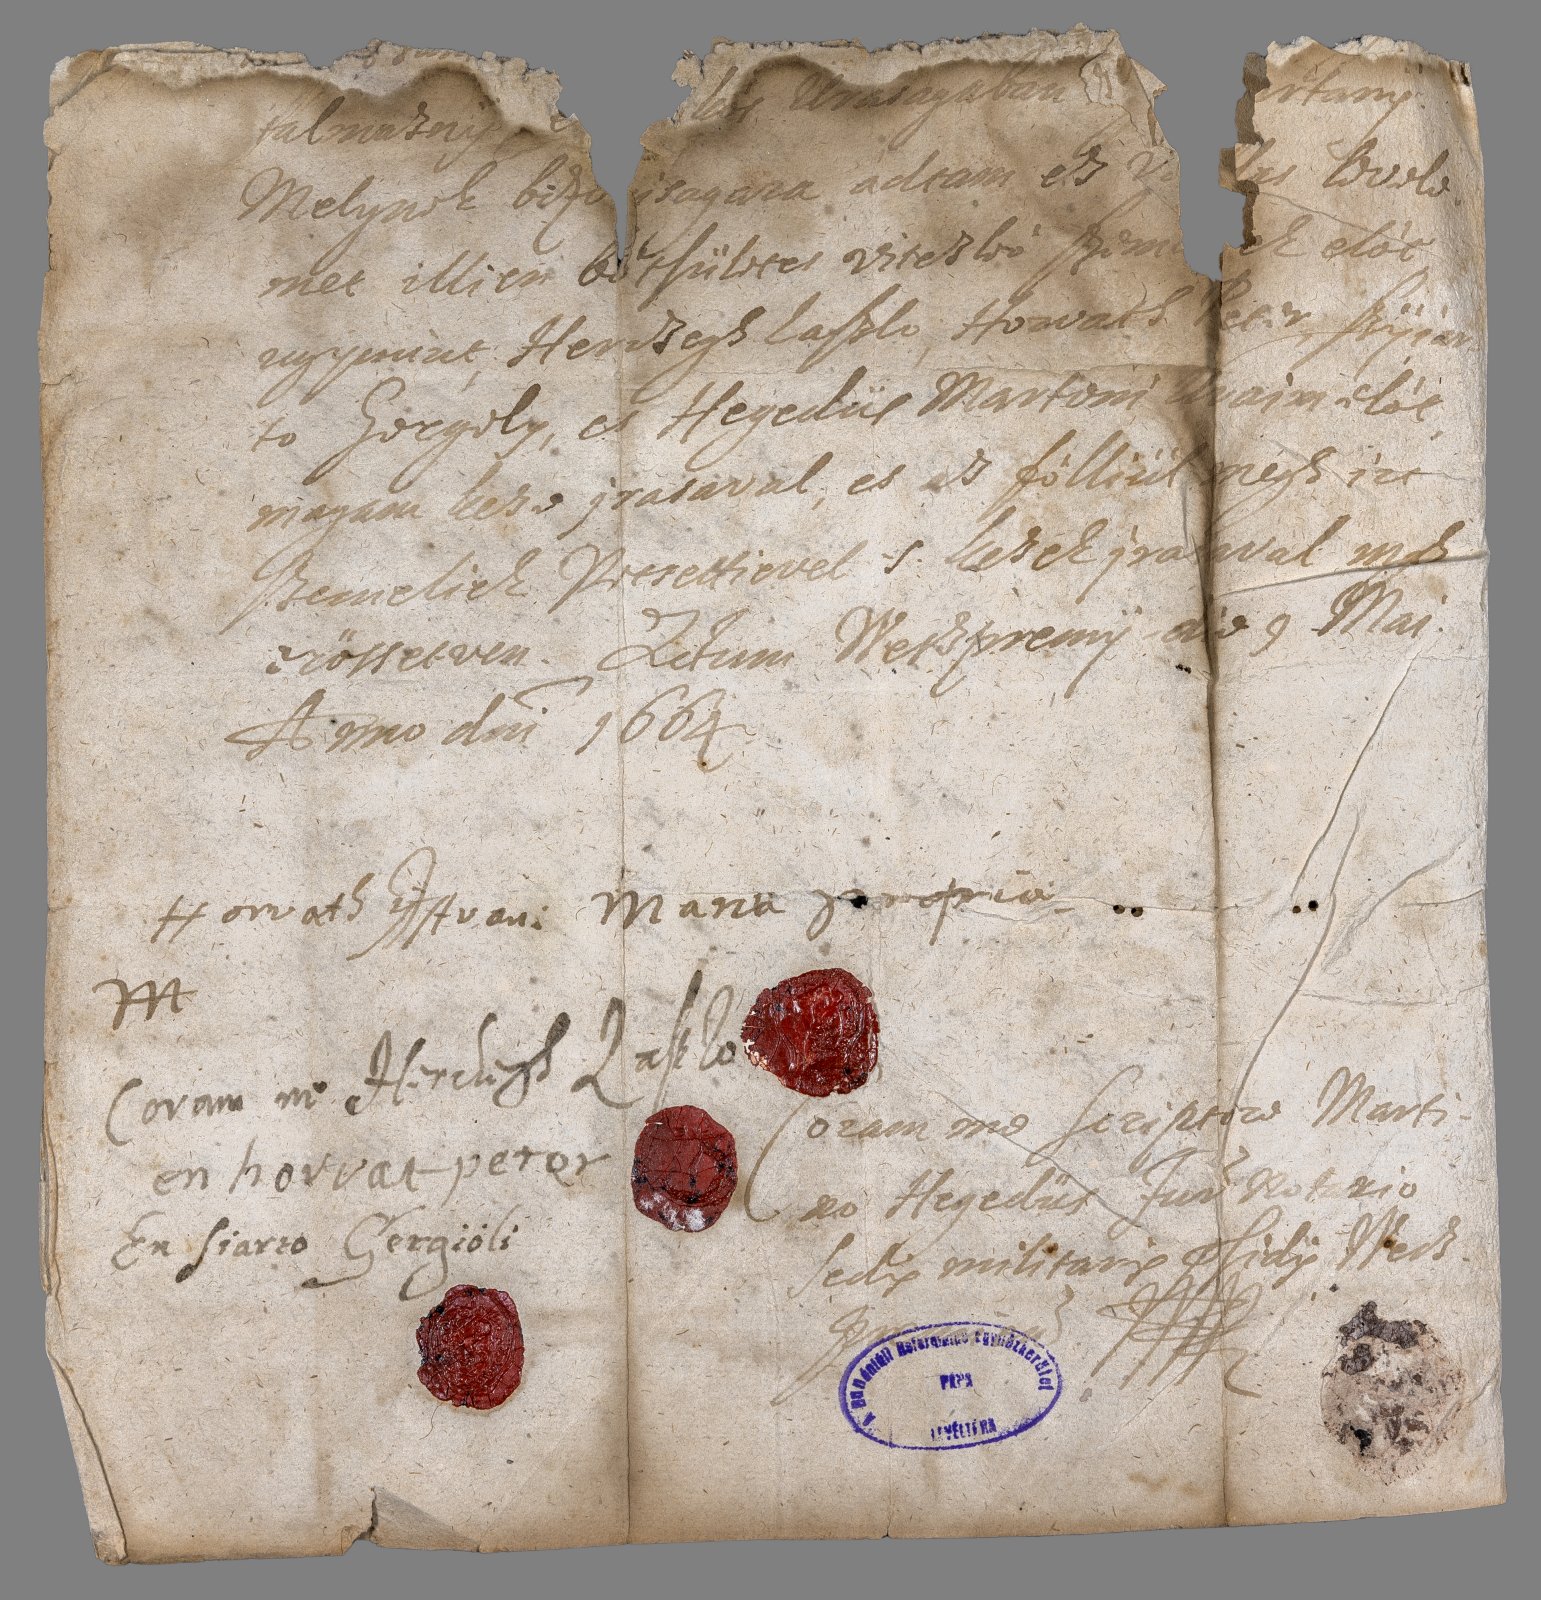 talmazny
Melynek bizo isagara adtam ez le levele
met illien böchülletes vitezlö szeme ek elöt
ugymint, Herczegh laszlo, Horvath Peter, szijiar
to Gergöly, es Hegedüs Martoni Uraim elöt,
magam keze jrasaval, es az föllyül megh irt
szemeliek Pecsettievel s. kezek jrasaval megh
erössetven. Datum Weszpremij die 9 Maij
Anno dni 1664
Horvath Istvan: Manu propria
Coram me Herczegh Laszlo
en horvat peter
En siarto Gergiöli
Coram me scriptore Marti-
no Hegedüs Jur Notario
sedis militaris Wesz-
A Dunántúli Református Egyházkerület
PÁPA
LEVÉLTÁRA